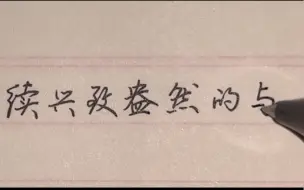 续兴致盎然的与